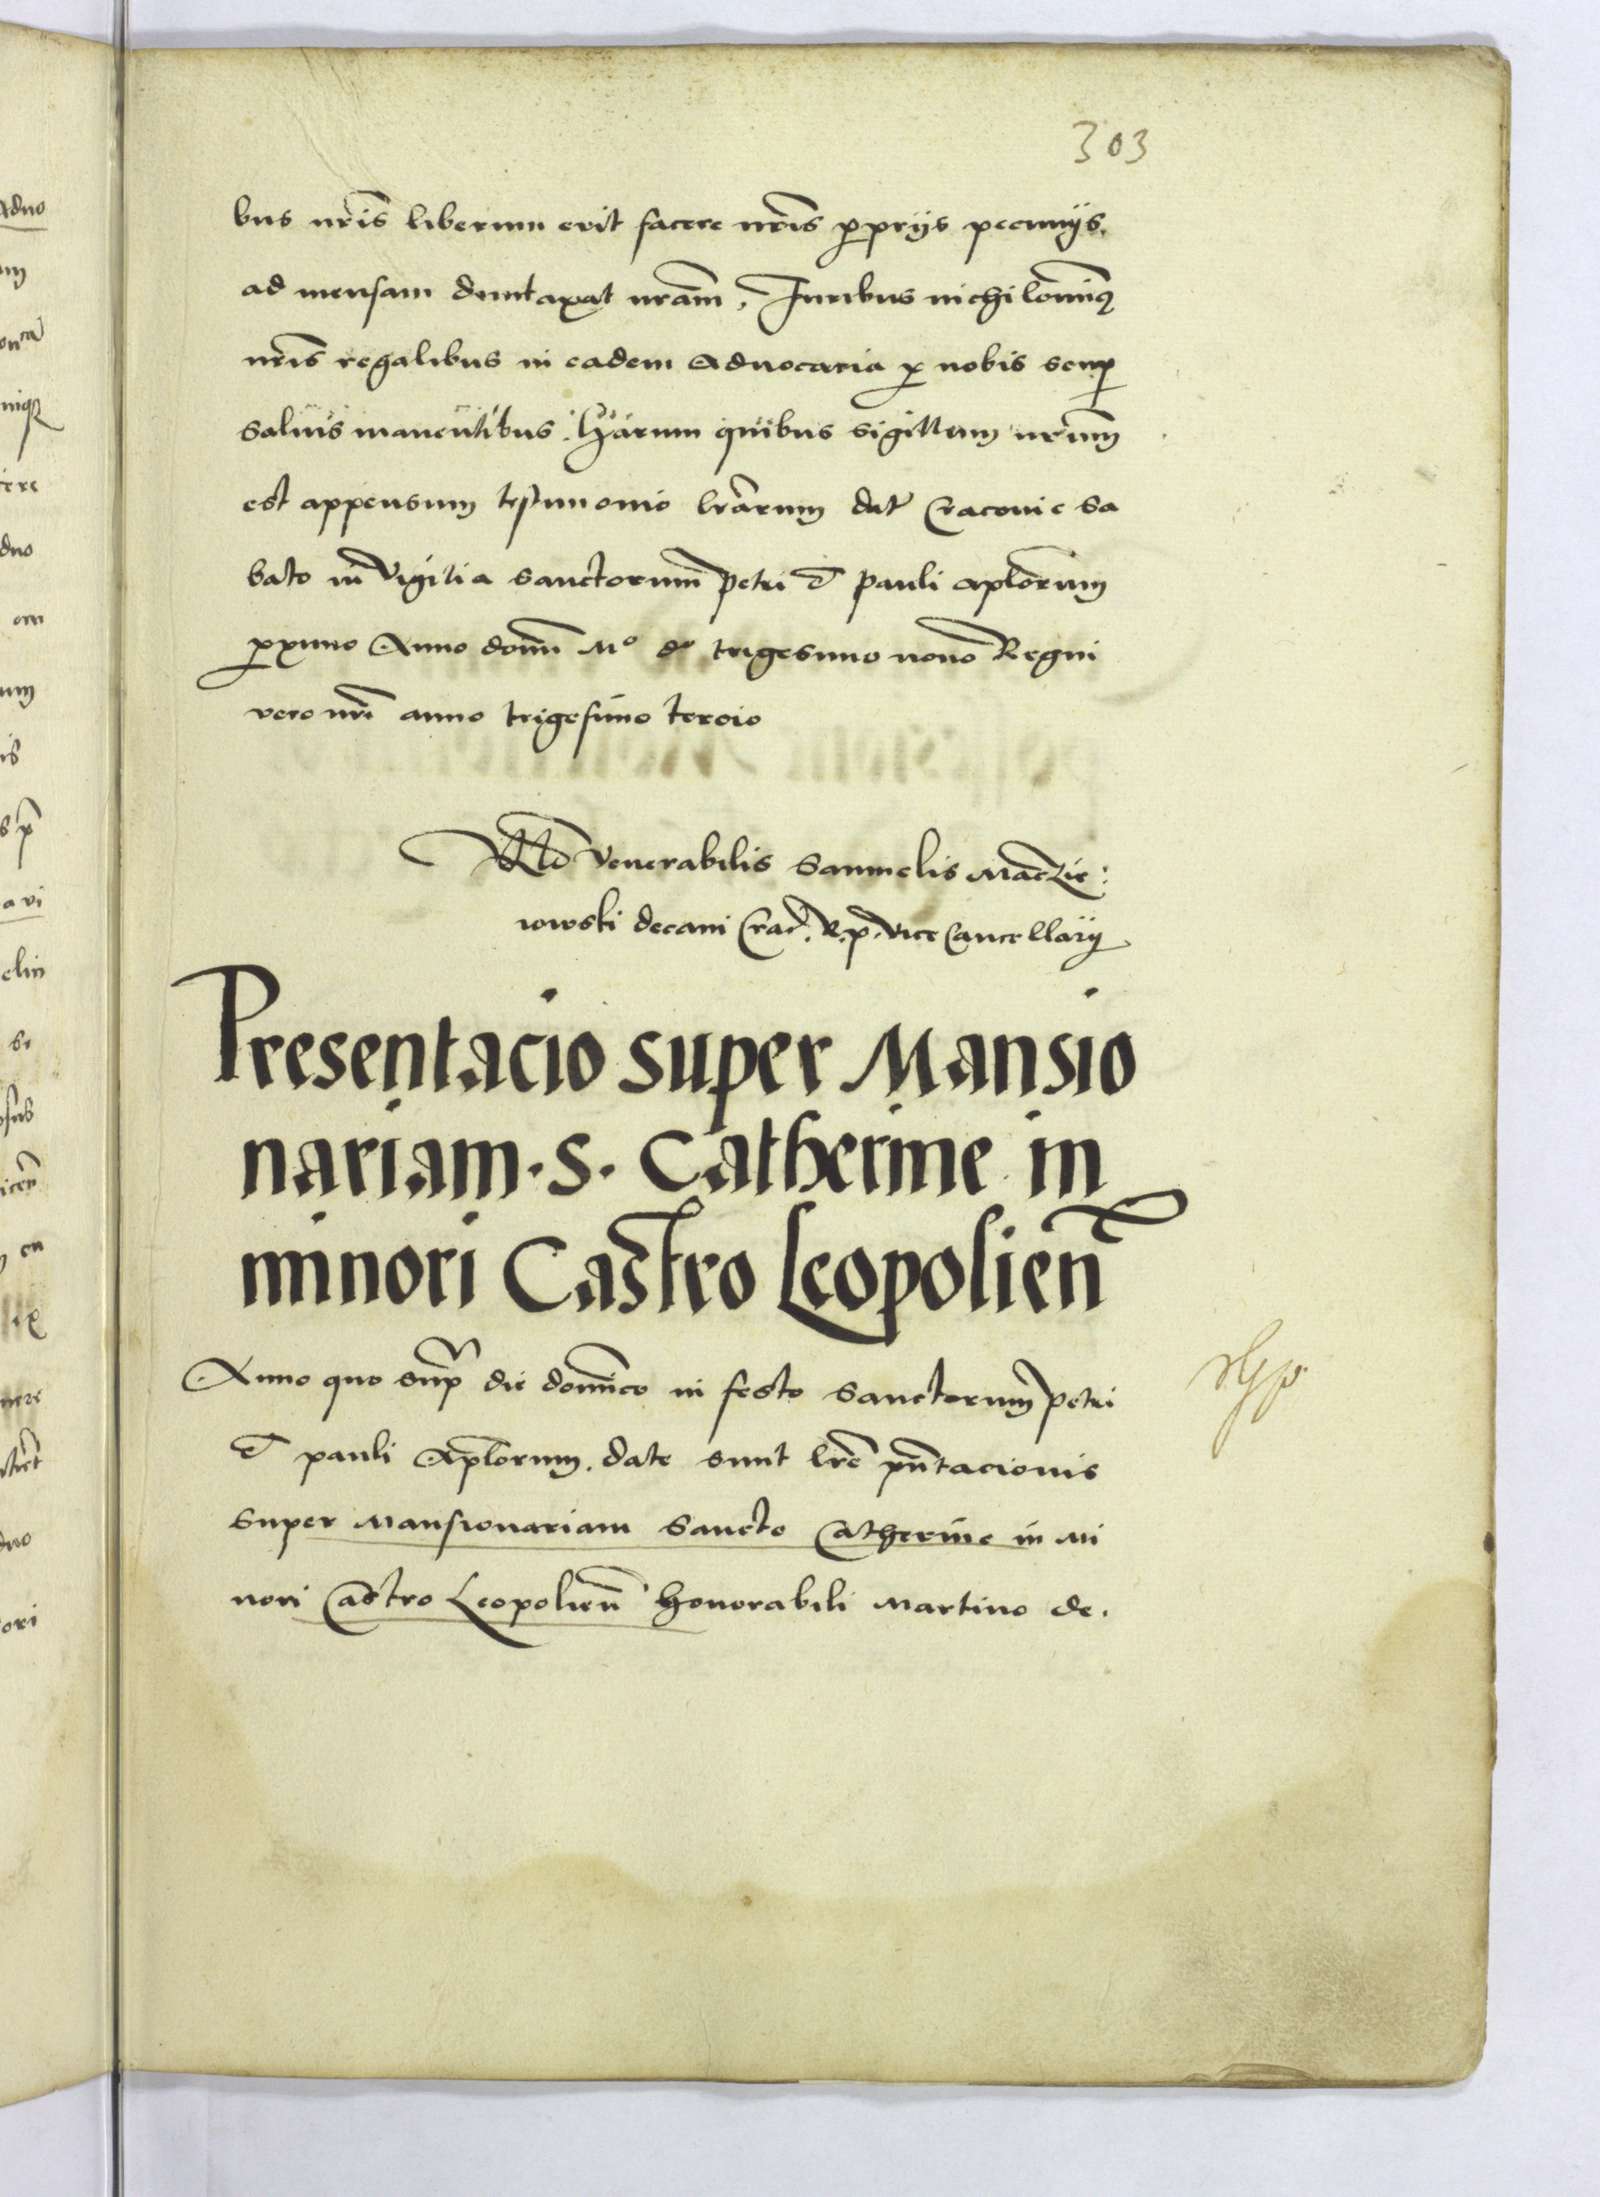 303
bus nr̃is liberum erit facere nr̃is ꝓprijs pecunijs.
ad mensam duntaxat nrãm, Juribus nichilominꝰ
nr̃is regalibus in eadem Aduocacia ꝓ nobis semꝑ
saluis manentibus. Harum quibus sigillum nr̃um
est appensum testimonio lr̃arum dat̃ Cracouie Sa
bato in vigilia sanctorum petri et pauli aplõrum
ꝓximo Anno domĩ Mº dº trigesimo nono Regni
vero nr̃i anno trigesimo tercio
Rlº venerabilis Samuelis Maczie:
iowski decani Crac̃. R. p. vice Cancellarij
Presentacio super Mansio
nariam .S. Catherine in
minori Castro Leopolieñ
Anno quo sup̃ die domĩco in festo Sanctorum petri
et pauli Aplõrum. date sunt lr̃e pñtacionis
super Mansionariam Sancte Catherine in Mi
nori Castro Leopolieñ honorabili Martino de.